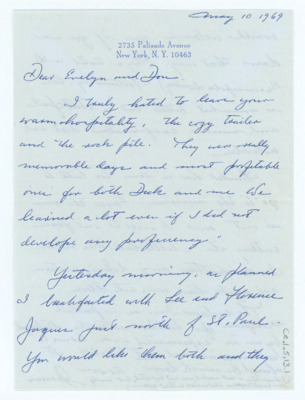 May 10 1969
2735 Palisade Avenue
New York, N. Y. 10463
Dear Evelyn and Don.
I truly hated to leave your
warm hospitality, the cozy trailer
and the rock pile. They were really
memorable days and most profitable
ones for both Dick and me. We
learned a lot even if I did not
develope any proficiency.
Yesterday morning, as planned
I breakfasted with Lee and Florence
Jaques just north of St. Paul.
You would like them both and they